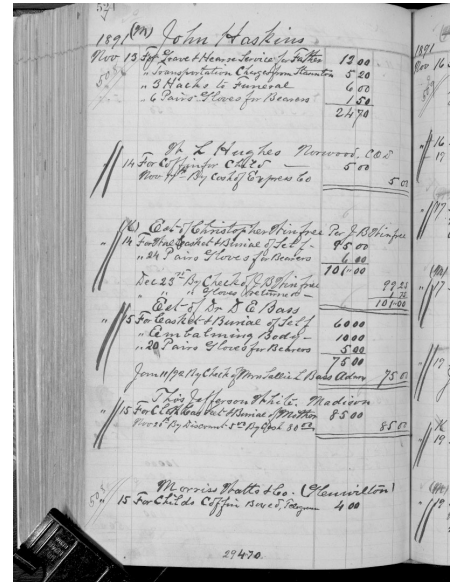 52
1891 (Pd) John Haskins
Nov 13 For Grave & Hearse Service for Father 12 00
" Transportation Charges from Staunton 5 20
" 3 Hacks to Funeral 6 00
" 6 Pairs Gloves for Bearers 1 50
24 70
W. L Hughes Norwood, C.O.D
" 14 For Coffin for Child 5 00
Nov By Cash of Express Co 5 00
Est of Christopher Winfree Per J.B Winfree
14 For Casket & Burial of Self 95 00
" 24 Pairs Gloves for Bearers 6 00
101.00
Dec 23rd By Check of J.B Winfree 99 25
" Gloves returned
101.00
Est of Dr D E Bass
" 15 For Casket & Burial of Self 60 00
" Embalming Body 10 00
" 20 Pairs Gloves for Bearers 5 00
75 00
Jany 11/92 By Check of Mrs Sallie L Bass Admr 75 00
Thos Jefferson White. Madison
" 15 For Cloth Casket & Burial of Mother 85 00
By Discount 5 00 By Cash 80 00 85 00
Morriss Watts & Co. (Glenwilton)
" 15 For Childs Coffin Boxed, Telegram 4 00
294 70.
1891
Nov 16